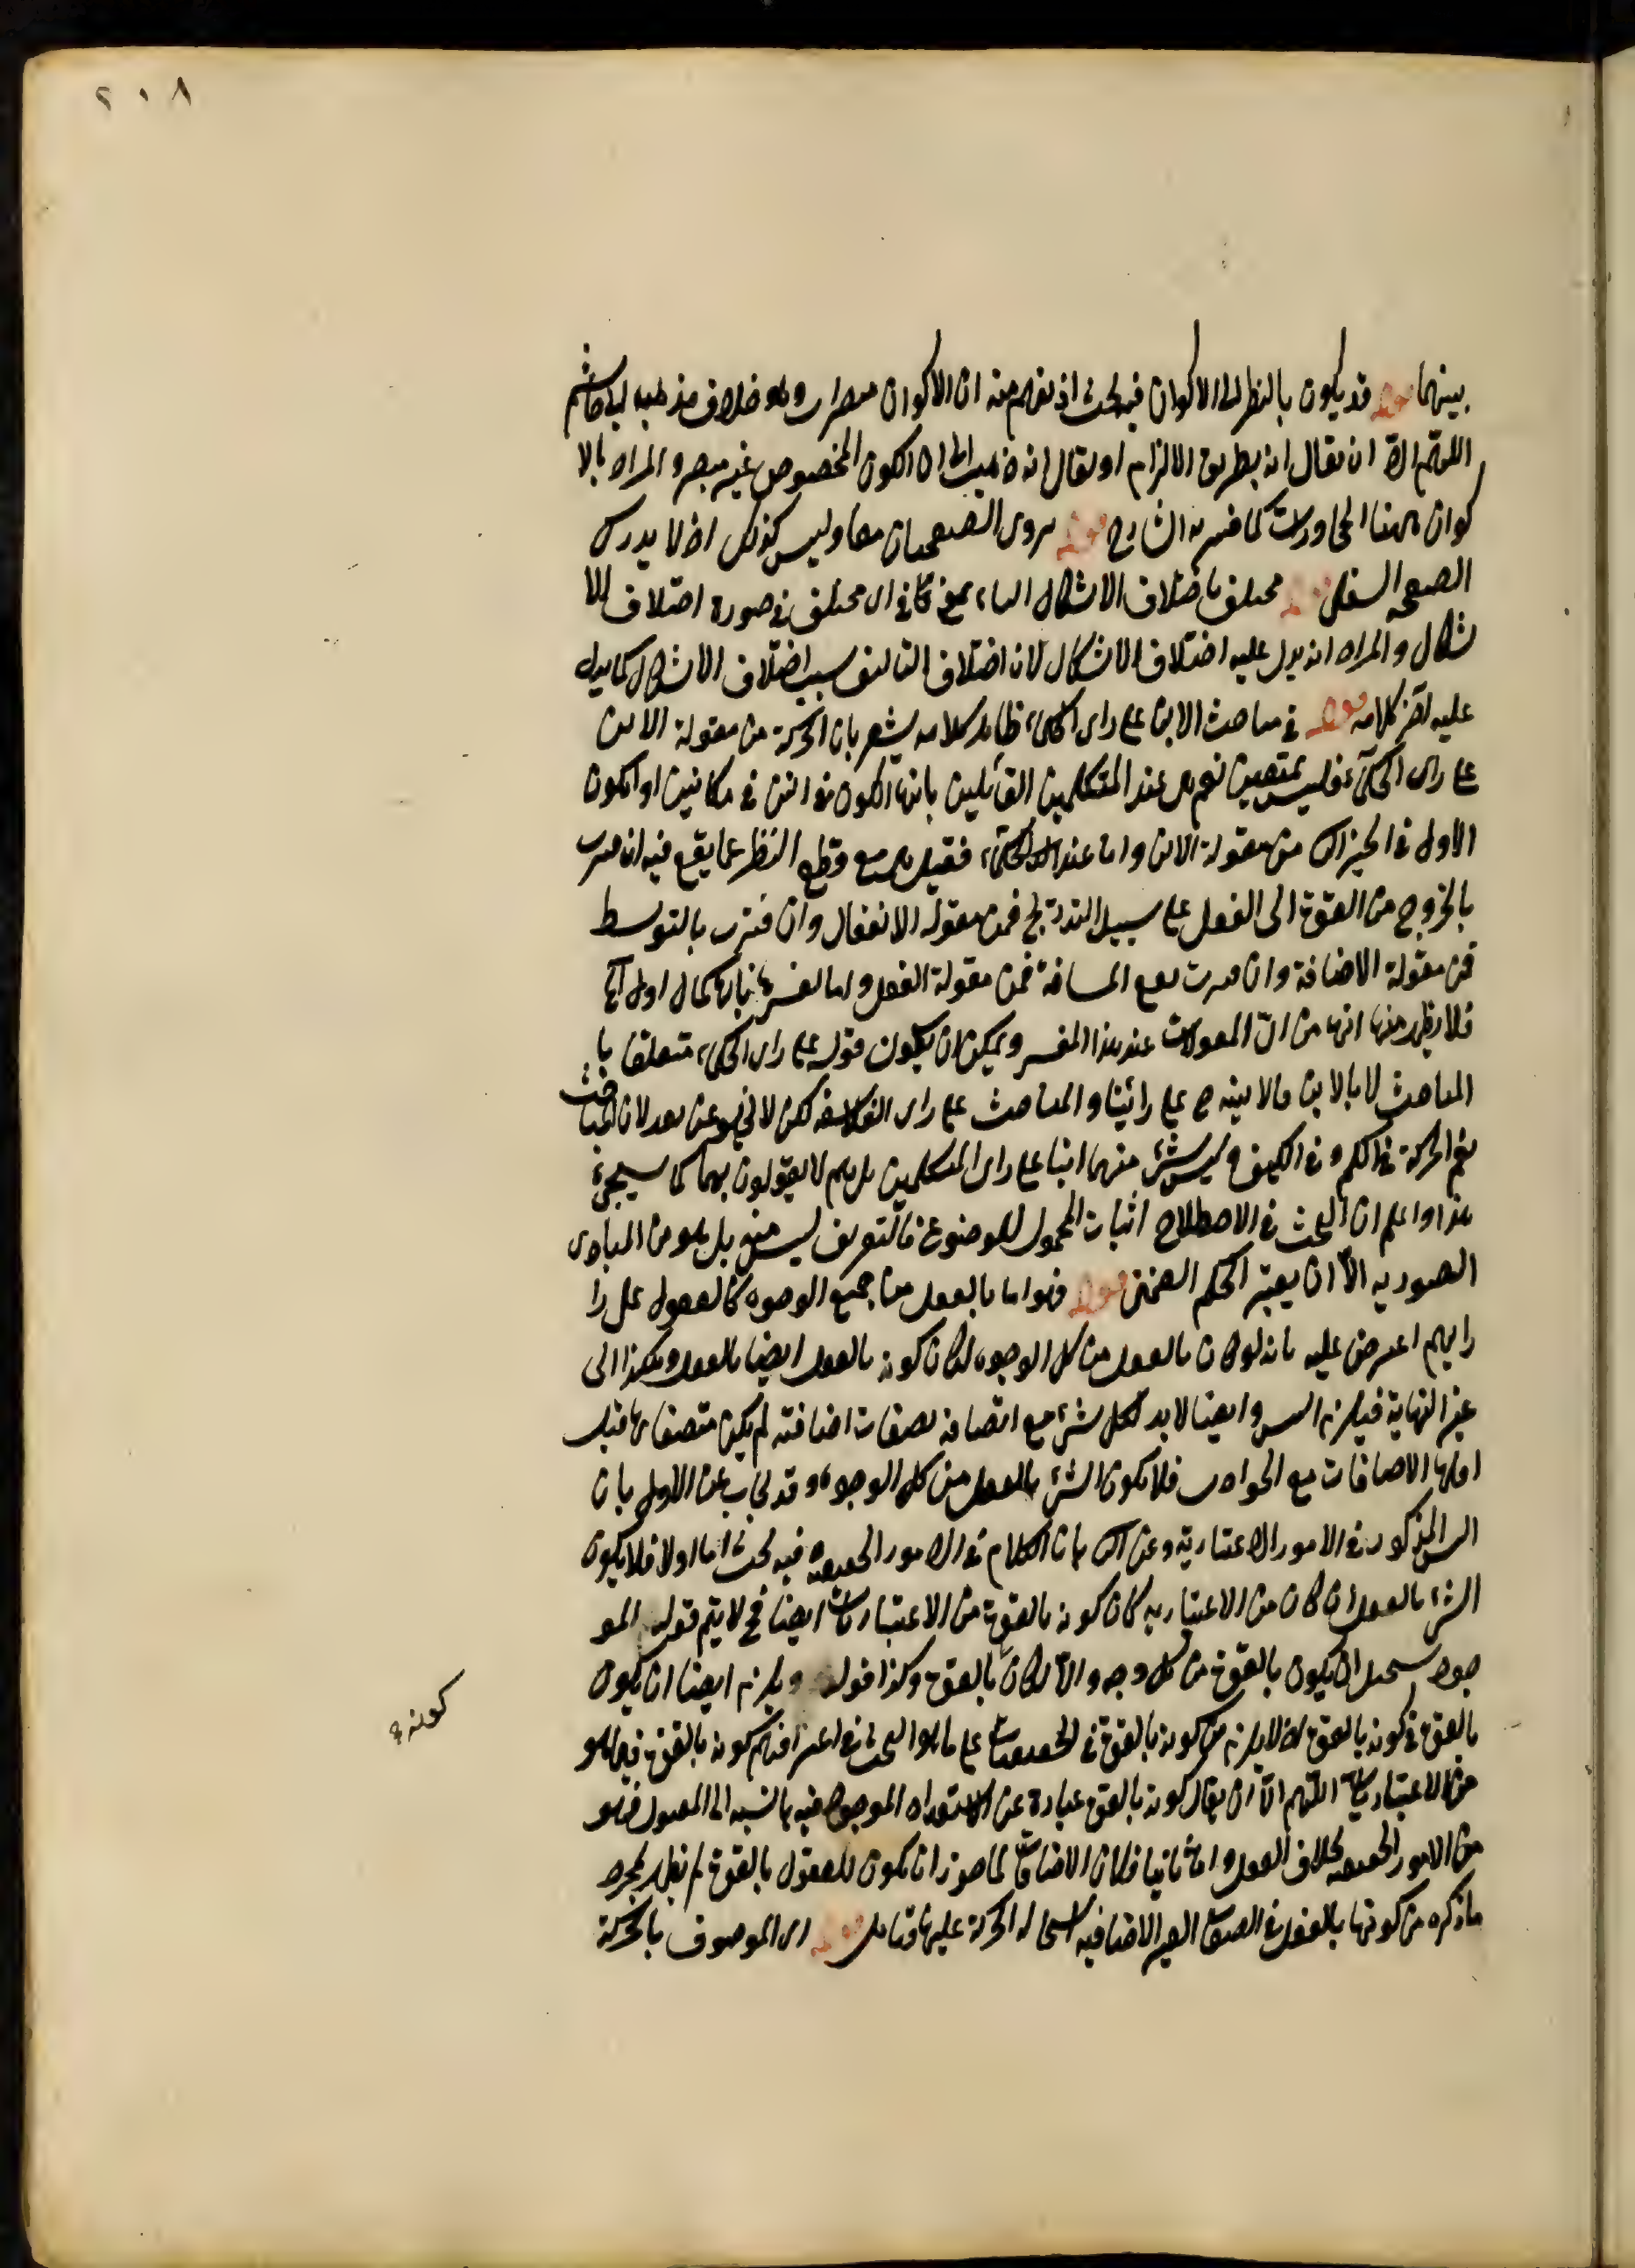 ٢٠٨
بينهما قوله قد يكون بالنظر الى الاكوان فيه بحث اذ يفهم منه ان الاكوان مبصرات وهو خلاف مذهب ابي هاشم
اللهم الا ان يقال انه بطريق الالزام او يقال انه ذهب الى ان الكون المخصوص غير مبصر والمراد بالا
كوان ههنا المجاورات كما فسر به الشارح قوله يروى الصفحتان معا وليس كذلك اذ لا يدرك
الصفحة السفلى قوله مختلف باختلاف الاشكال الباء بمعنى في اى مختلف في صورة اختلاف الا
شكال والمراد انه يدل عليه اختلاف الاشكال لان اختلاف التاليف سبب اختلاف الاشكال كما يدل
عليه آخر كلامه قوله في مباحث الاين على راى الحكماء ظاهر كلامه يشعر بان الحركة من مقولة الاين
على راى الحكماء فليس بمتعين نعم هى عند المتكلمين القائلين بانها الكون في آنين في مكانين او الكون
الاول في الحيز الثانى من مقولة الاين واما عند الحكماء فقيل مع قطع النظر عما يقع فيه ان فسرت
بالخروج من القوة الى الفعل على سبيل التدريج فمن مقولة الانفعال وان فسرت بالتوسط
فمن مقولة الاضافة وان فسرت بقطع المسافة فمن مقولة الفعل واما تفسيرها بانها كمال اول آه
فلا يظهر منها انها من اى المقولات عند هذا المفسر ويمكن ان يكون قوله على راى الحكماء متعلقا با
المباحث لا بالاين فالاينية ح على رأينا والمباحث على راى الفلاسفة لكن لا يخ عن بعد لان المباحث
نعم الحركة في الكم وفى الكيف وليس شئ منهما اينا على راى المتكلمين بل هم لا يقولون بهما كما سيجئ
هذا واعلم ان البحث في الاصطلاح اثبات المحمول للموضوع فالتعريف ليس منه بل هو من المبادى
الصورية الا ان يعتبر الحكم الضمنى قوله فهو اما بالفعل من جميع الوجوه كالعقول على را
رايهم اعترض عليه بانه لو كان بالفعل من كل الوجوه لكان كونه بالفعل ايضا بالفعل وهكذا الى
غير النهاية فيلزم التس وايضا لا بد لكل شئ مع اتصافه بصفات اضافته لم يكن متصفا بها قبل
اقلها الاضافات مع الحوادث فلا يكون الشئ بالفعل من كل الوجوه وقد يجاب عن الاول بان
التس المذكور في الامور الاعتبارية وعن الثانى بان الكلام في الامور الحقيقية فيه بحث اما اولا فلا يكون
الشئ بالفعل ان كان من الاعتبارية كان كونه بالقوة من الاعتباريات ايضا فح لا يتم قوله المو
جود يستحيل ان يكون بالقوة من كل وجه والا لكان بالقوة وكذا قوله ويلزم ايضا ان يكون
بالقوة في كونه بالقوة اذ لا يلزم من كونه بالقوة في الحقيقيات على ما هو البحث في اعترافهم كونه بالقوة فيما هو
من الاعتباريات اللهم الا ان يقال كونه بالقوة عبارة عن الاستعداد الموجود فيه بالنسبة الى المقبول فهو
من الامور الحقيقية بخلاف الفعل واما ثانيا فلان الاضافات لما جوز ان يكون للعقول بالقوة لم يظهر بمجرد
ما ذكره من كونها بالفعل في الصفات الغير الاضافية استحالة الحركة عليها فتامل قوله اى الموصوف بالحركة
كونه